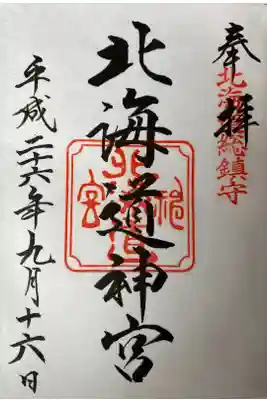 奉拝
北海道総鎮守
北海道神宮
平成二十六年九月十六日